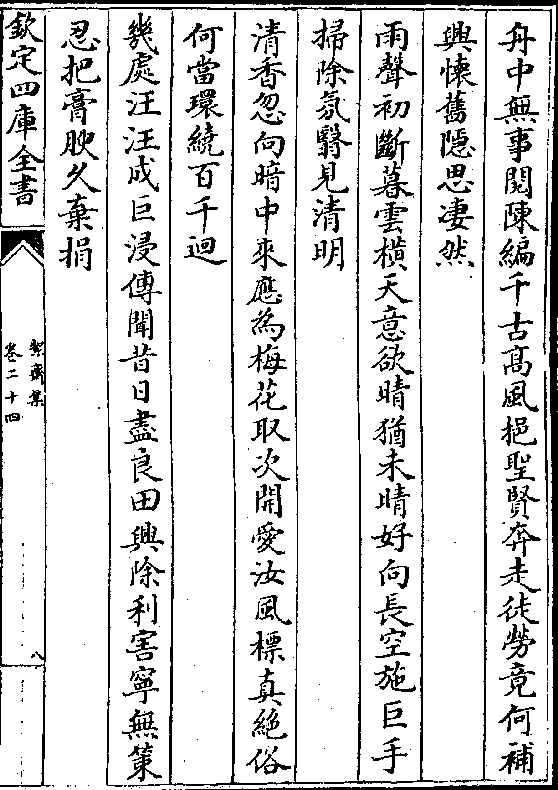 舟中無事閱陳編千古髙風挹聖賢奔走徒勞竟何補
興懷舊隱思凄然
雨聲初斷暮雲橫天意欲晴猶未晴好向長空施巨手
掃除氛翳見清明
清香忽向暗中來應為梅花取次開愛汝風標真絶俗
何當環繞百千迴
幾處汪汪成巨浸傳聞昔日盡良田興除利害寧無策
忍把膏腴久棄捐
欽定四庫全書
絜齋集
卷二十四
八